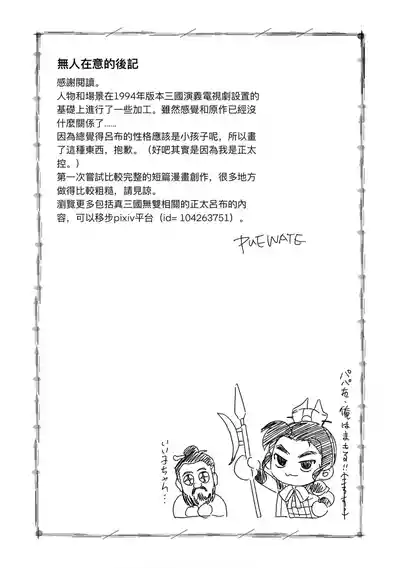 無人在意的後記
感謝閱讀。
人物和場景在1994年版本三國演義電視劇設置的
基礎上進行了一些加工。雖然感覺和原作已經沒
什麼關係了……
因為總覺得呂布的性格應該是小孩子呢，所以畫
了這種東西，抱歉。（好吧其實是因為我是正太
控。）
第一次嘗試比較完整的短篇漫畫創作，很多地方
做得比較粗糙，請見諒。
瀏覽更多包括真三國無雙相關的正太呂布的內
容，可以移步pixiv平台（id= 104263751）。
PUEWATE
俺は
いい子ちゃん…